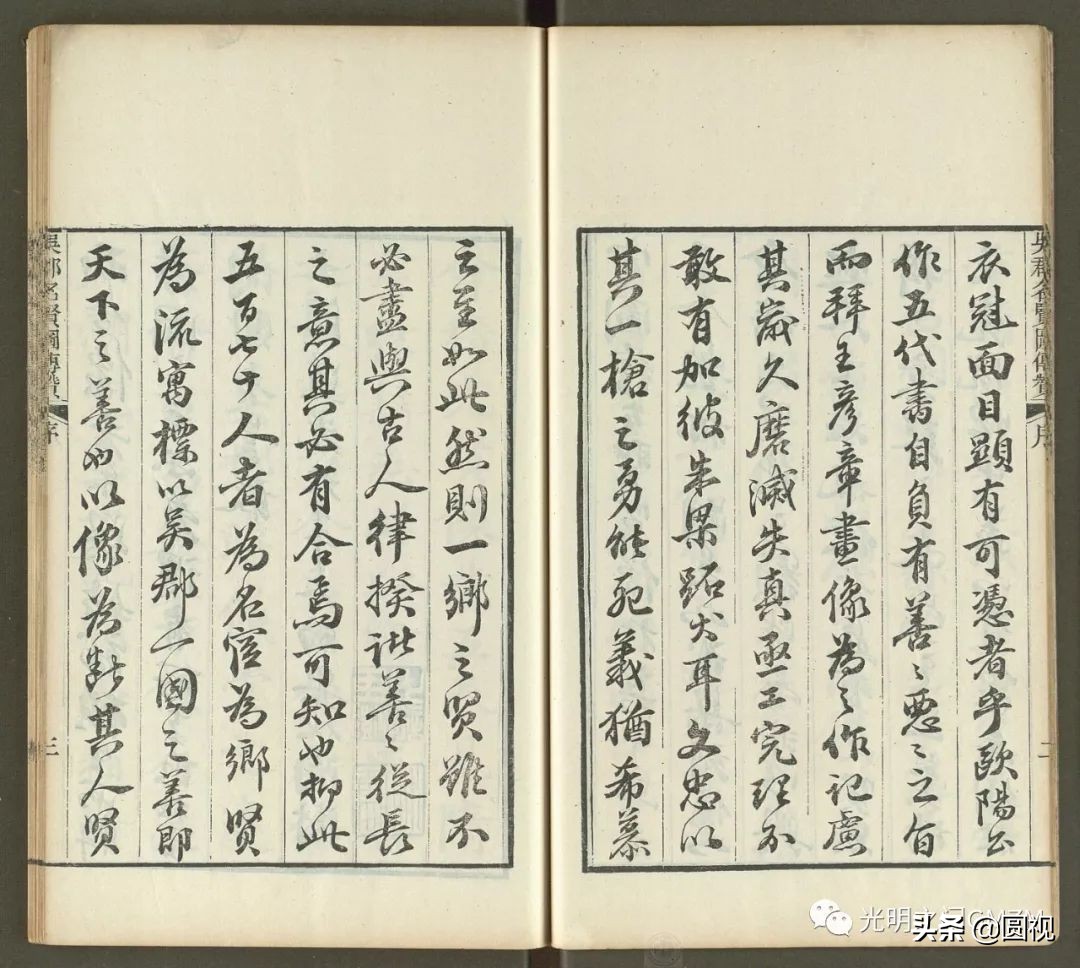 衣冠面目顯有可憑者乎歐陽公
作五代書自負有善〻惡〻之旨
而拜王彥章畫像為之作記慮
其歲久磨滅失真亟工完理不
敢有加彼朱梁跖犬耳文忠以
其一槍之勇能死義猶希慕
吳郡名賢圖傳贊 序
二
之至如此然則一鄉之賢雖不
必盡與古人律揆訿善〻從長
之意其必有合焉可知也抑此
五百七十人者為名宦為鄉賢
為流寓標以吳郡一國之善即
天下之善也以像為斷其人賢
吳郡名賢圖傳贊 序
三
光明之门
头条 @圆视